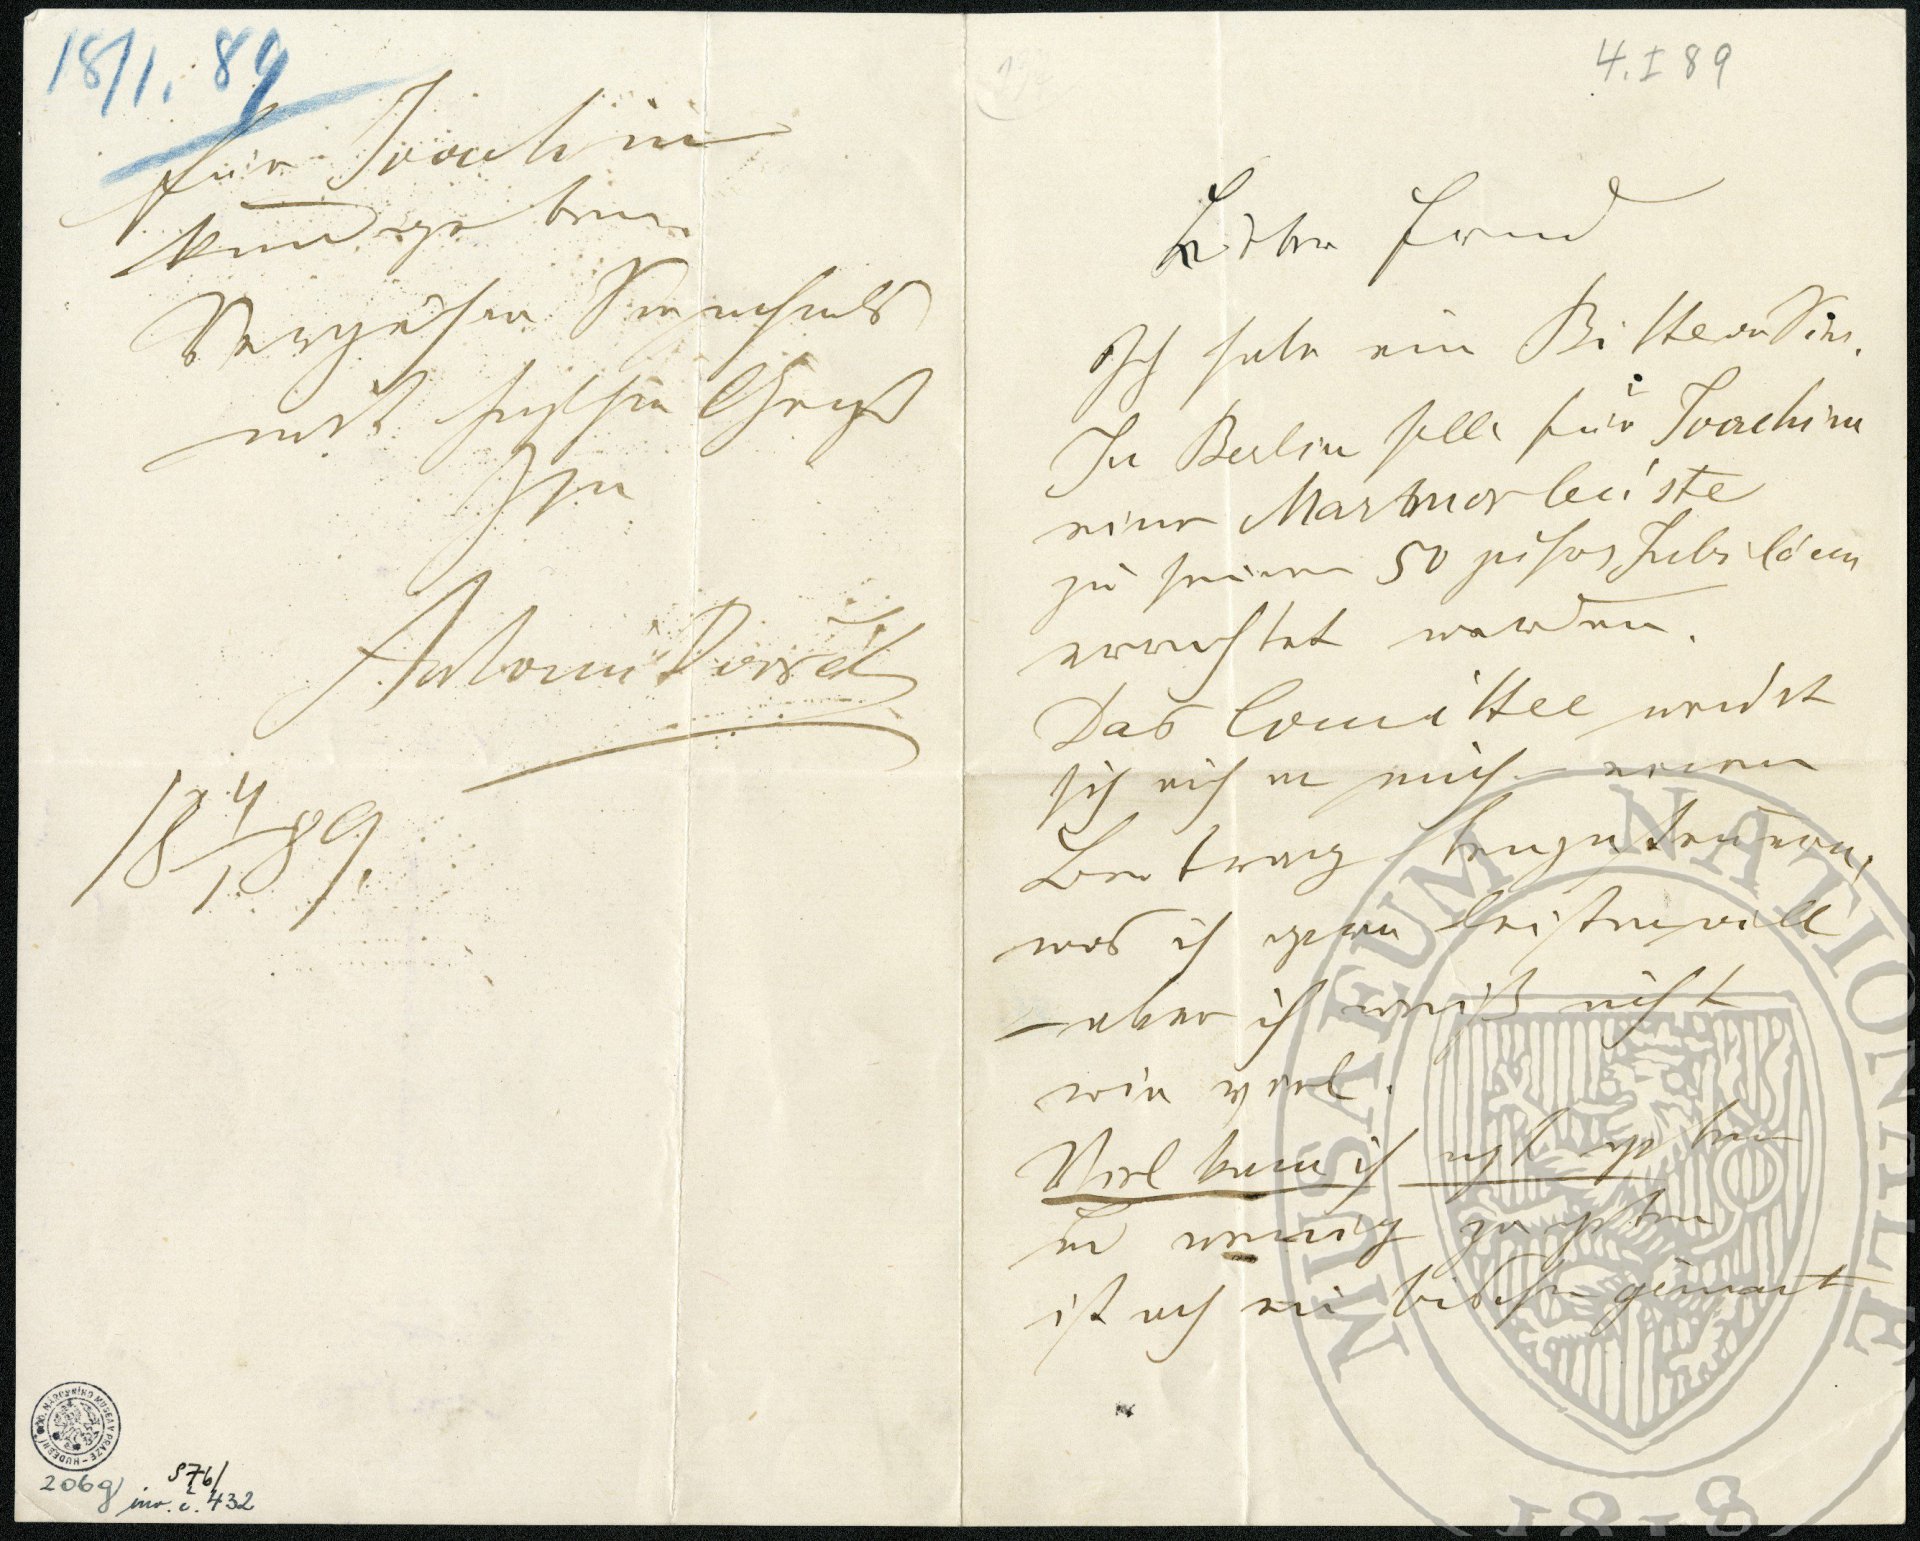 4. I 89
Lieber Freund
Ich habe eine Bitte an Sie.
In Berlin soll für Joachim
eine Marmorbüste
zu seinem 50 Jubiläum
errichtet werden.
Das Comittee wendet
sich auch an mich einen
Beitrag
was ich gern leisten will
– aber ich weiß nicht
wie viel.
Viel kann ich nicht geben
und wenig zu geben
ist auch ein bischen genant
18/1. 89
für Joachim
Verzeihen Sie nochmals
mit herzlichen Gruß
Ihr
Antonín Dvořák
18 4/1 89.
MUSAEUM NATIONALE
1818
HUDEBNÍ ODD. NÁRODNÍHO MUSEA V PRAZE
206g
S 76/
inv. č. 432